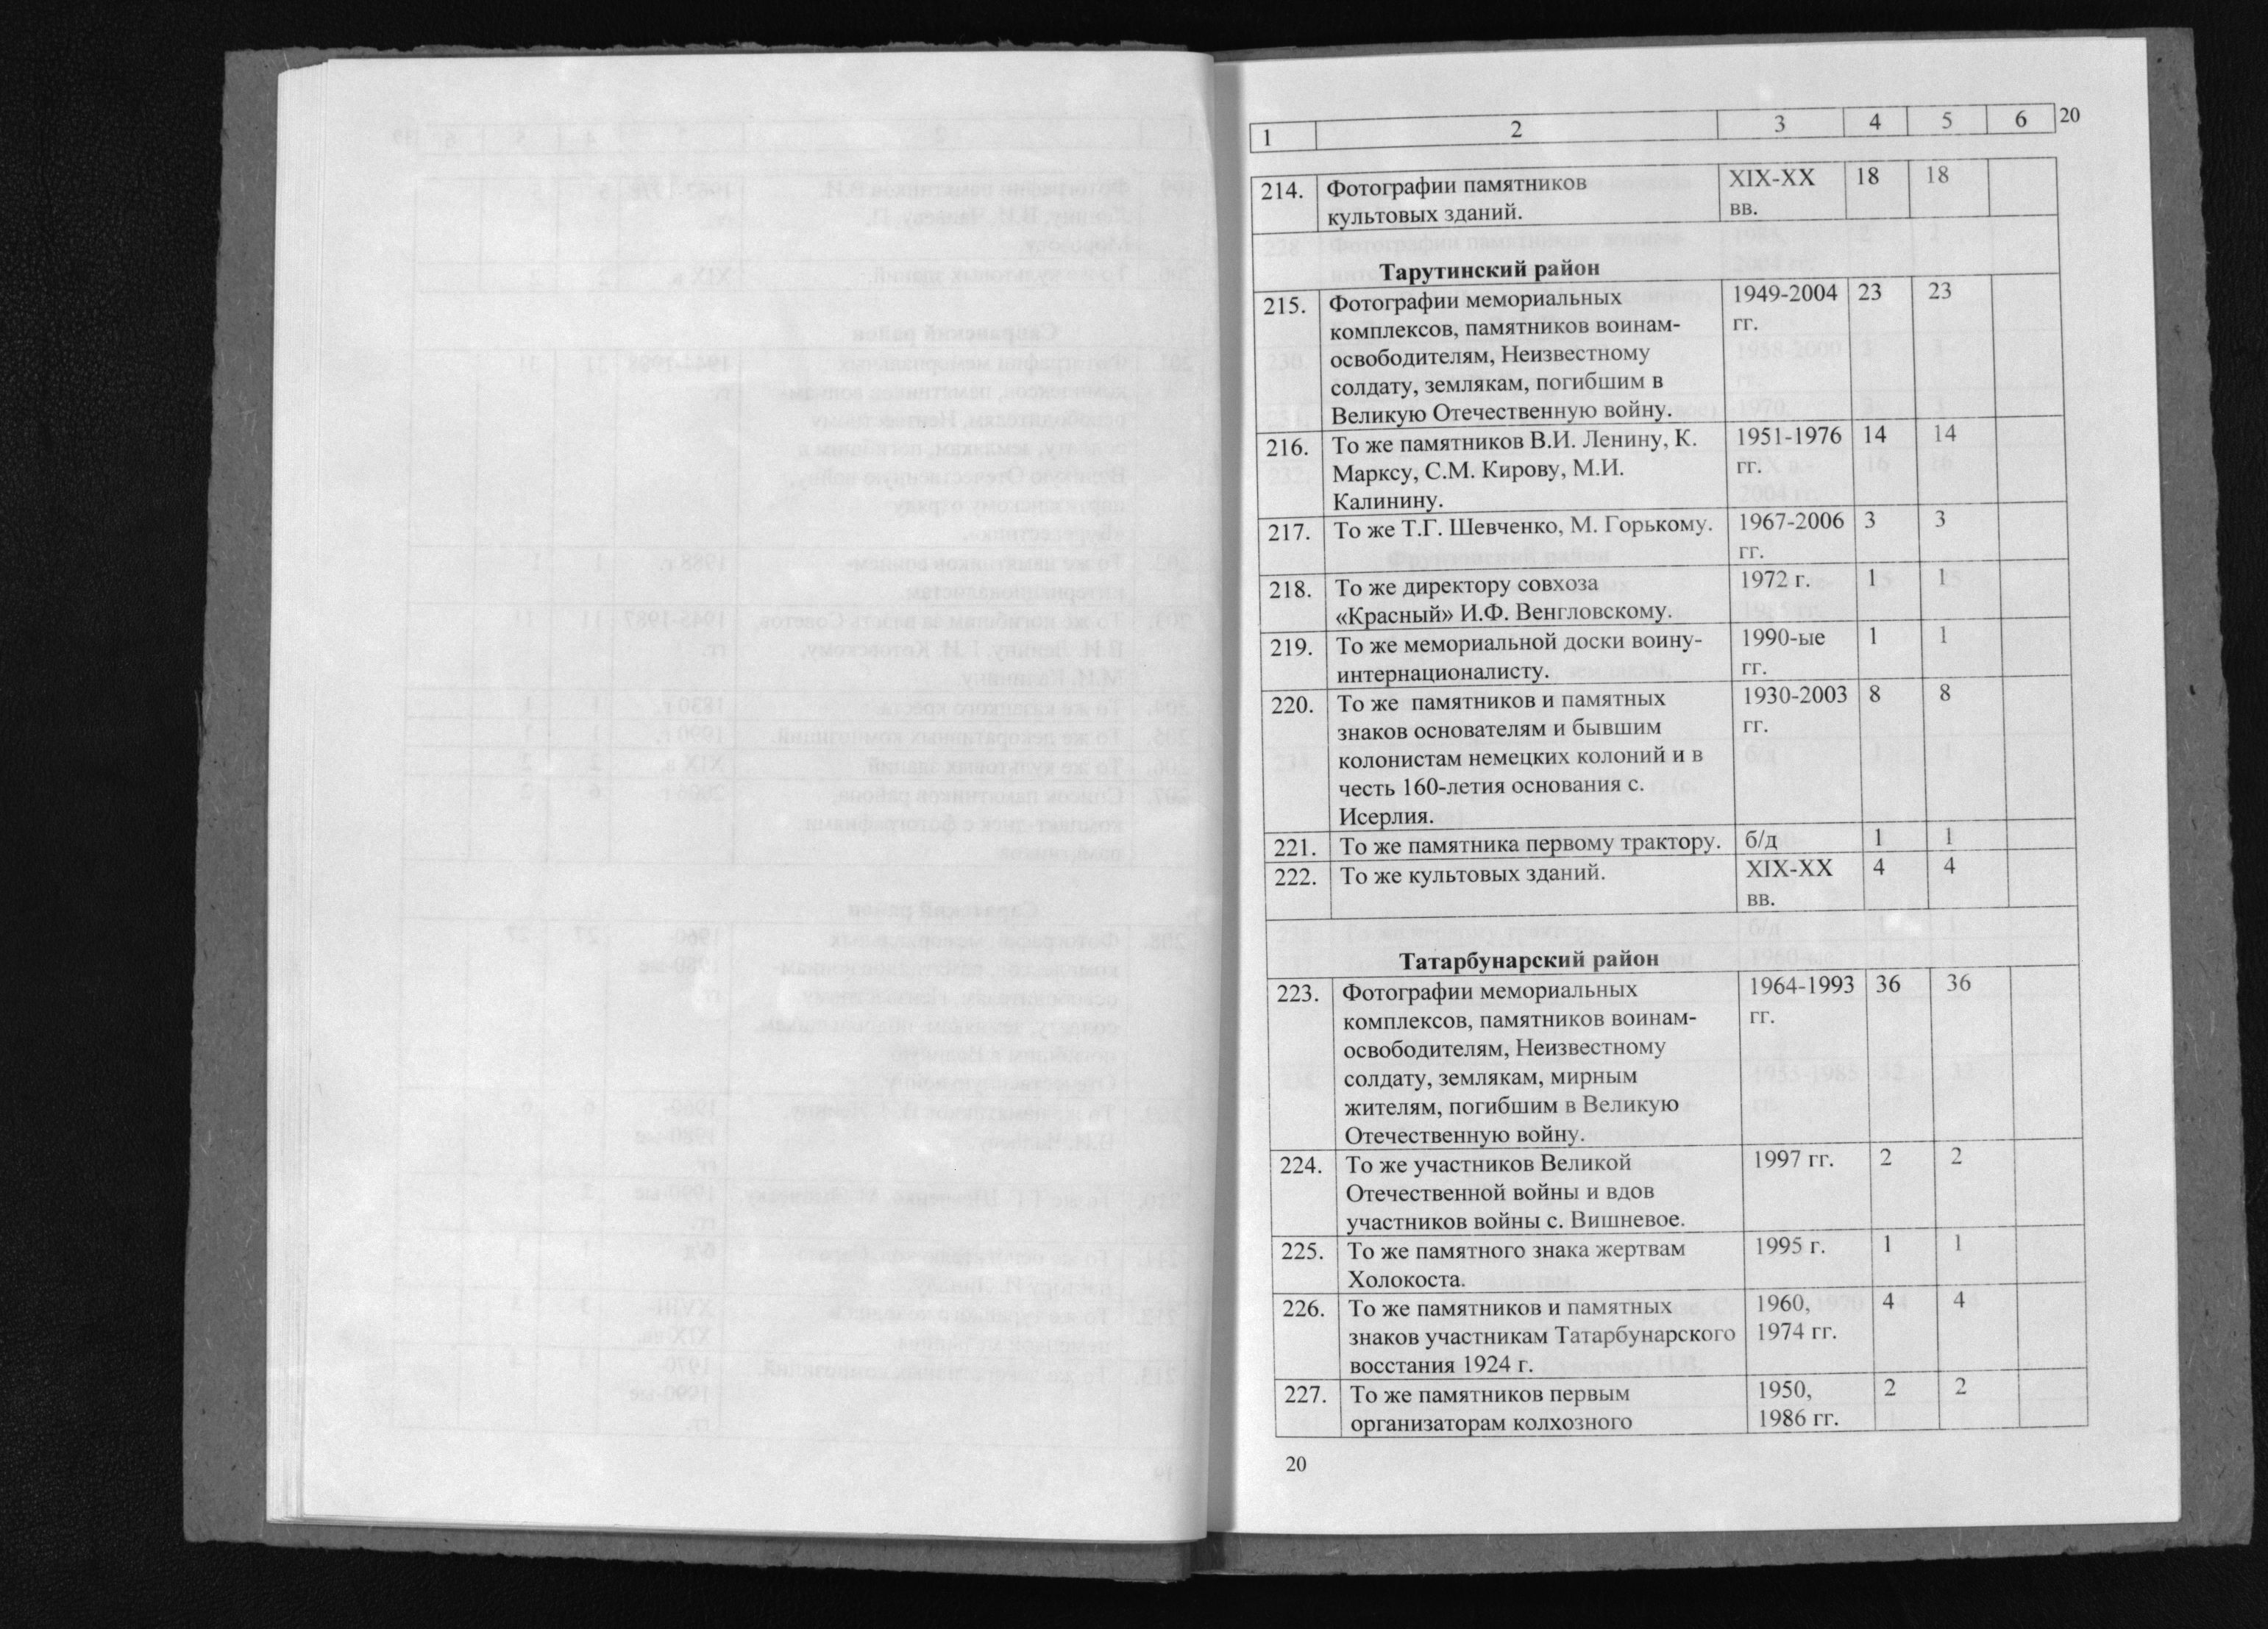 1 2 3 4 5 6 20
214. Фотографии памятников XIX-XX 18 18
культовых зданий. вв.
Тарутинский район
215. Фотографии мемориальных 1949-2004 23 23
комплексов, памятников воинам- гг.
освободителям, Неизвестному
солдату, землякам, погибшим в
Великую Отечественную войну.
216. То же памятников В.И. Ленину, К. 1951-1976 14 14
Марксу, С.М. Кирову, М.И. гг.
Калинину.
217. То же Т.Г. Шевченко, М. Горькому. 1967-2006 3 3
гг.
218. То же директору совхоза 1972 г. 1 1
«Красный» И.Ф. Венгловскому.
219. То же мемориальной доски воину- 1990-ые 1 1
интернационалисту. гг.
220. То же памятников и памятных 1930-2003 8 8
знаков основателям и бывшим гг.
колонистам немецких колоний и в
честь 160-летия основания с.
Исерлия.
221. То же памятника первому трактору. б/д 1 1
222. То же культовых зданий. XIX-XX 4 4
вв.
Татарбунарский район
223. Фотографии мемориальных 1964-1993 36 36
комплексов, памятников воинам- гг.
освободителям, Неизвестному
солдату, землякам, мирным
жителям, погибшим в Великую
Отечественную войну.
224. То же участников Великой 1997 гг. 2 2
Отечественной войны и вдов
участников войны с. Вишневое.
225. То же памятного знака жертвам 1995 г. 1 1
Холокоста.
226. То же памятников и памятных 1960, 4 4
знаков участникам Татарбунарского 1974 гг.
восстания 1924 г.
227. То же памятников первым 1950, 2 2
организаторам колхозного 1986 гг.
20